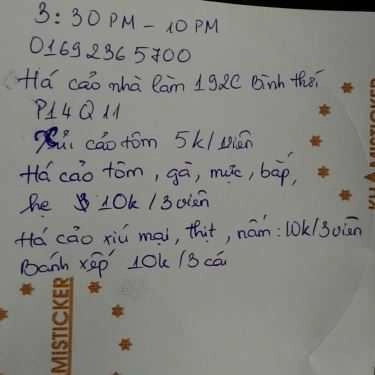 3:30 PM - 10 PM
01692365700
Há cảo nhà làm 192C Bình thới
P14 Q11
Xủi cảo tôm 5k/viên
Há cảo tôm, gà, mực, bắp,
hẹ 10k/3viên
Há cảo xíu mại, thịt, nấm: 10k/3viên
Bánh xếp 10k/3 cái
MISTICKER
MISTICKER